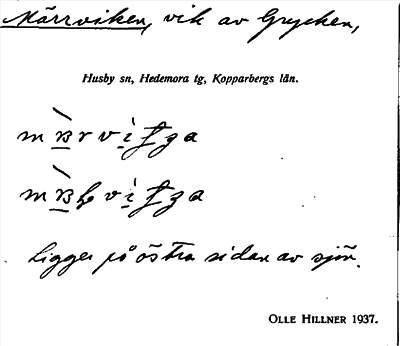 Märrviken, vik av Grycken,
Husby sn, Hedemora tg, Kopparbergs län.
ligger på östra sidan av sjön.
OLLE HILLNER 1937.